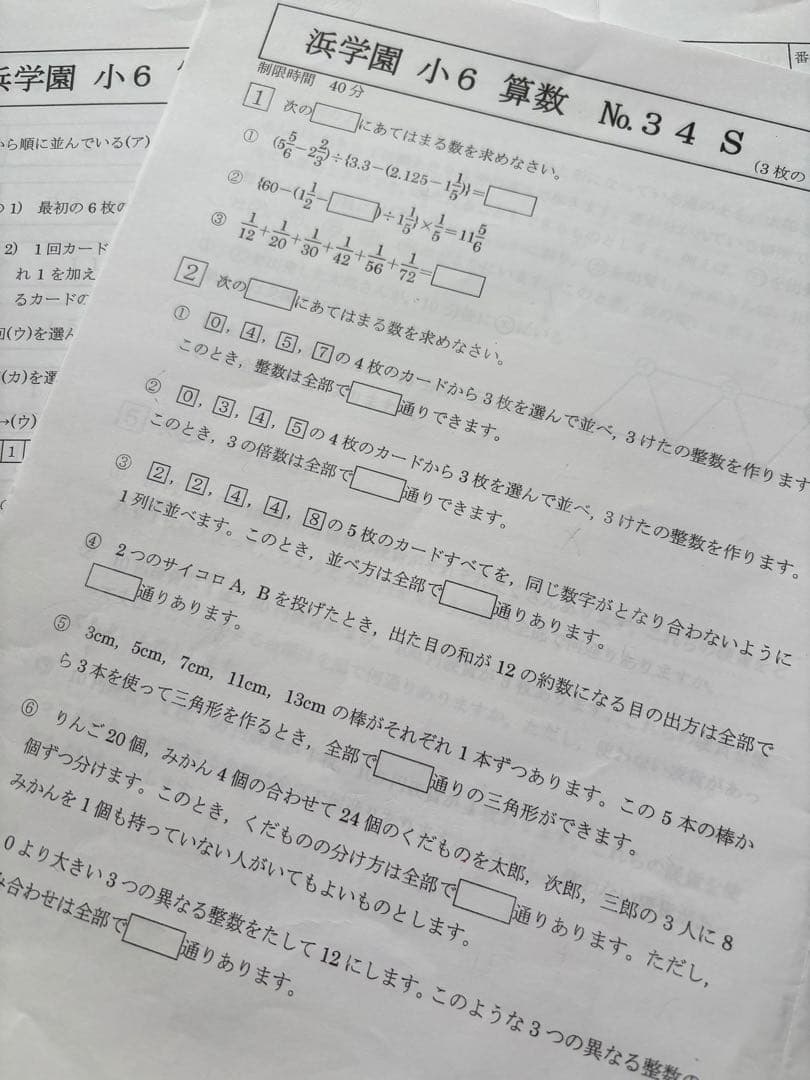 浜学園 小6 算数 No.34 S
番
(3枚の
制限時間 40分
1 次の□にあてはまる数を求めなさい。
① (5 5/6−2 2/3)÷{3.3−(2.125−1 1/5)}=□
② {60−(1 1/2−□)÷1 1/5}×1/5=11 5/6
③ 1/12+1/20+1/30+1/42+1/56+1/72=□
2 次の□にあてはまる数を求めなさい。
① 0, 4, 5, 7の4枚のカードから3枚を選んで並べ, 3けたの整数を作ります
このとき, 整数は全部で□通りできます。
② 0, 3, 4, 5の4枚のカードから3枚を選んで並べ, 3けたの整数を作ります。
このとき, 3の倍数は全部で□通りできます。
③ 2, 2, 4, 4, 8の5枚のカードすべてを, 同じ数字がとなり合わないように
1列に並べます。このとき, 並べ方は全部で□通りあります。
④ 2つのサイコロA, Bを投げたとき, 出た目の和が12の約数になる目の出方は全部で
□通りあります。
⑤ 3cm, 5cm, 7cm, 11cm, 13cmの棒がそれぞれ1本ずつあります。この5本の棒か
ら3本を使って三角形を作るとき, 全部で□通りの三角形ができます。
⑥ りんご20個, みかん4個の合わせて24個のくだものを太郎, 次郎, 三郎の3人に8
個ずつ分けます。このとき, くだものの分け方は全部で□通りあります。ただし,
みかんを1個も持っていない人がいてもよいものとします。
0より大きい3つの異なる整数をたして12にします。このような3つの異なる整数の
み合わせは全部で□通りあります。
浜学園 小6
から順に並んでいる(ア)
1) 最初の6枚の
2) 1回カード
れ1を加え
るカードの
(ウ)を選ん
(カ)を選
→(ウ)
1